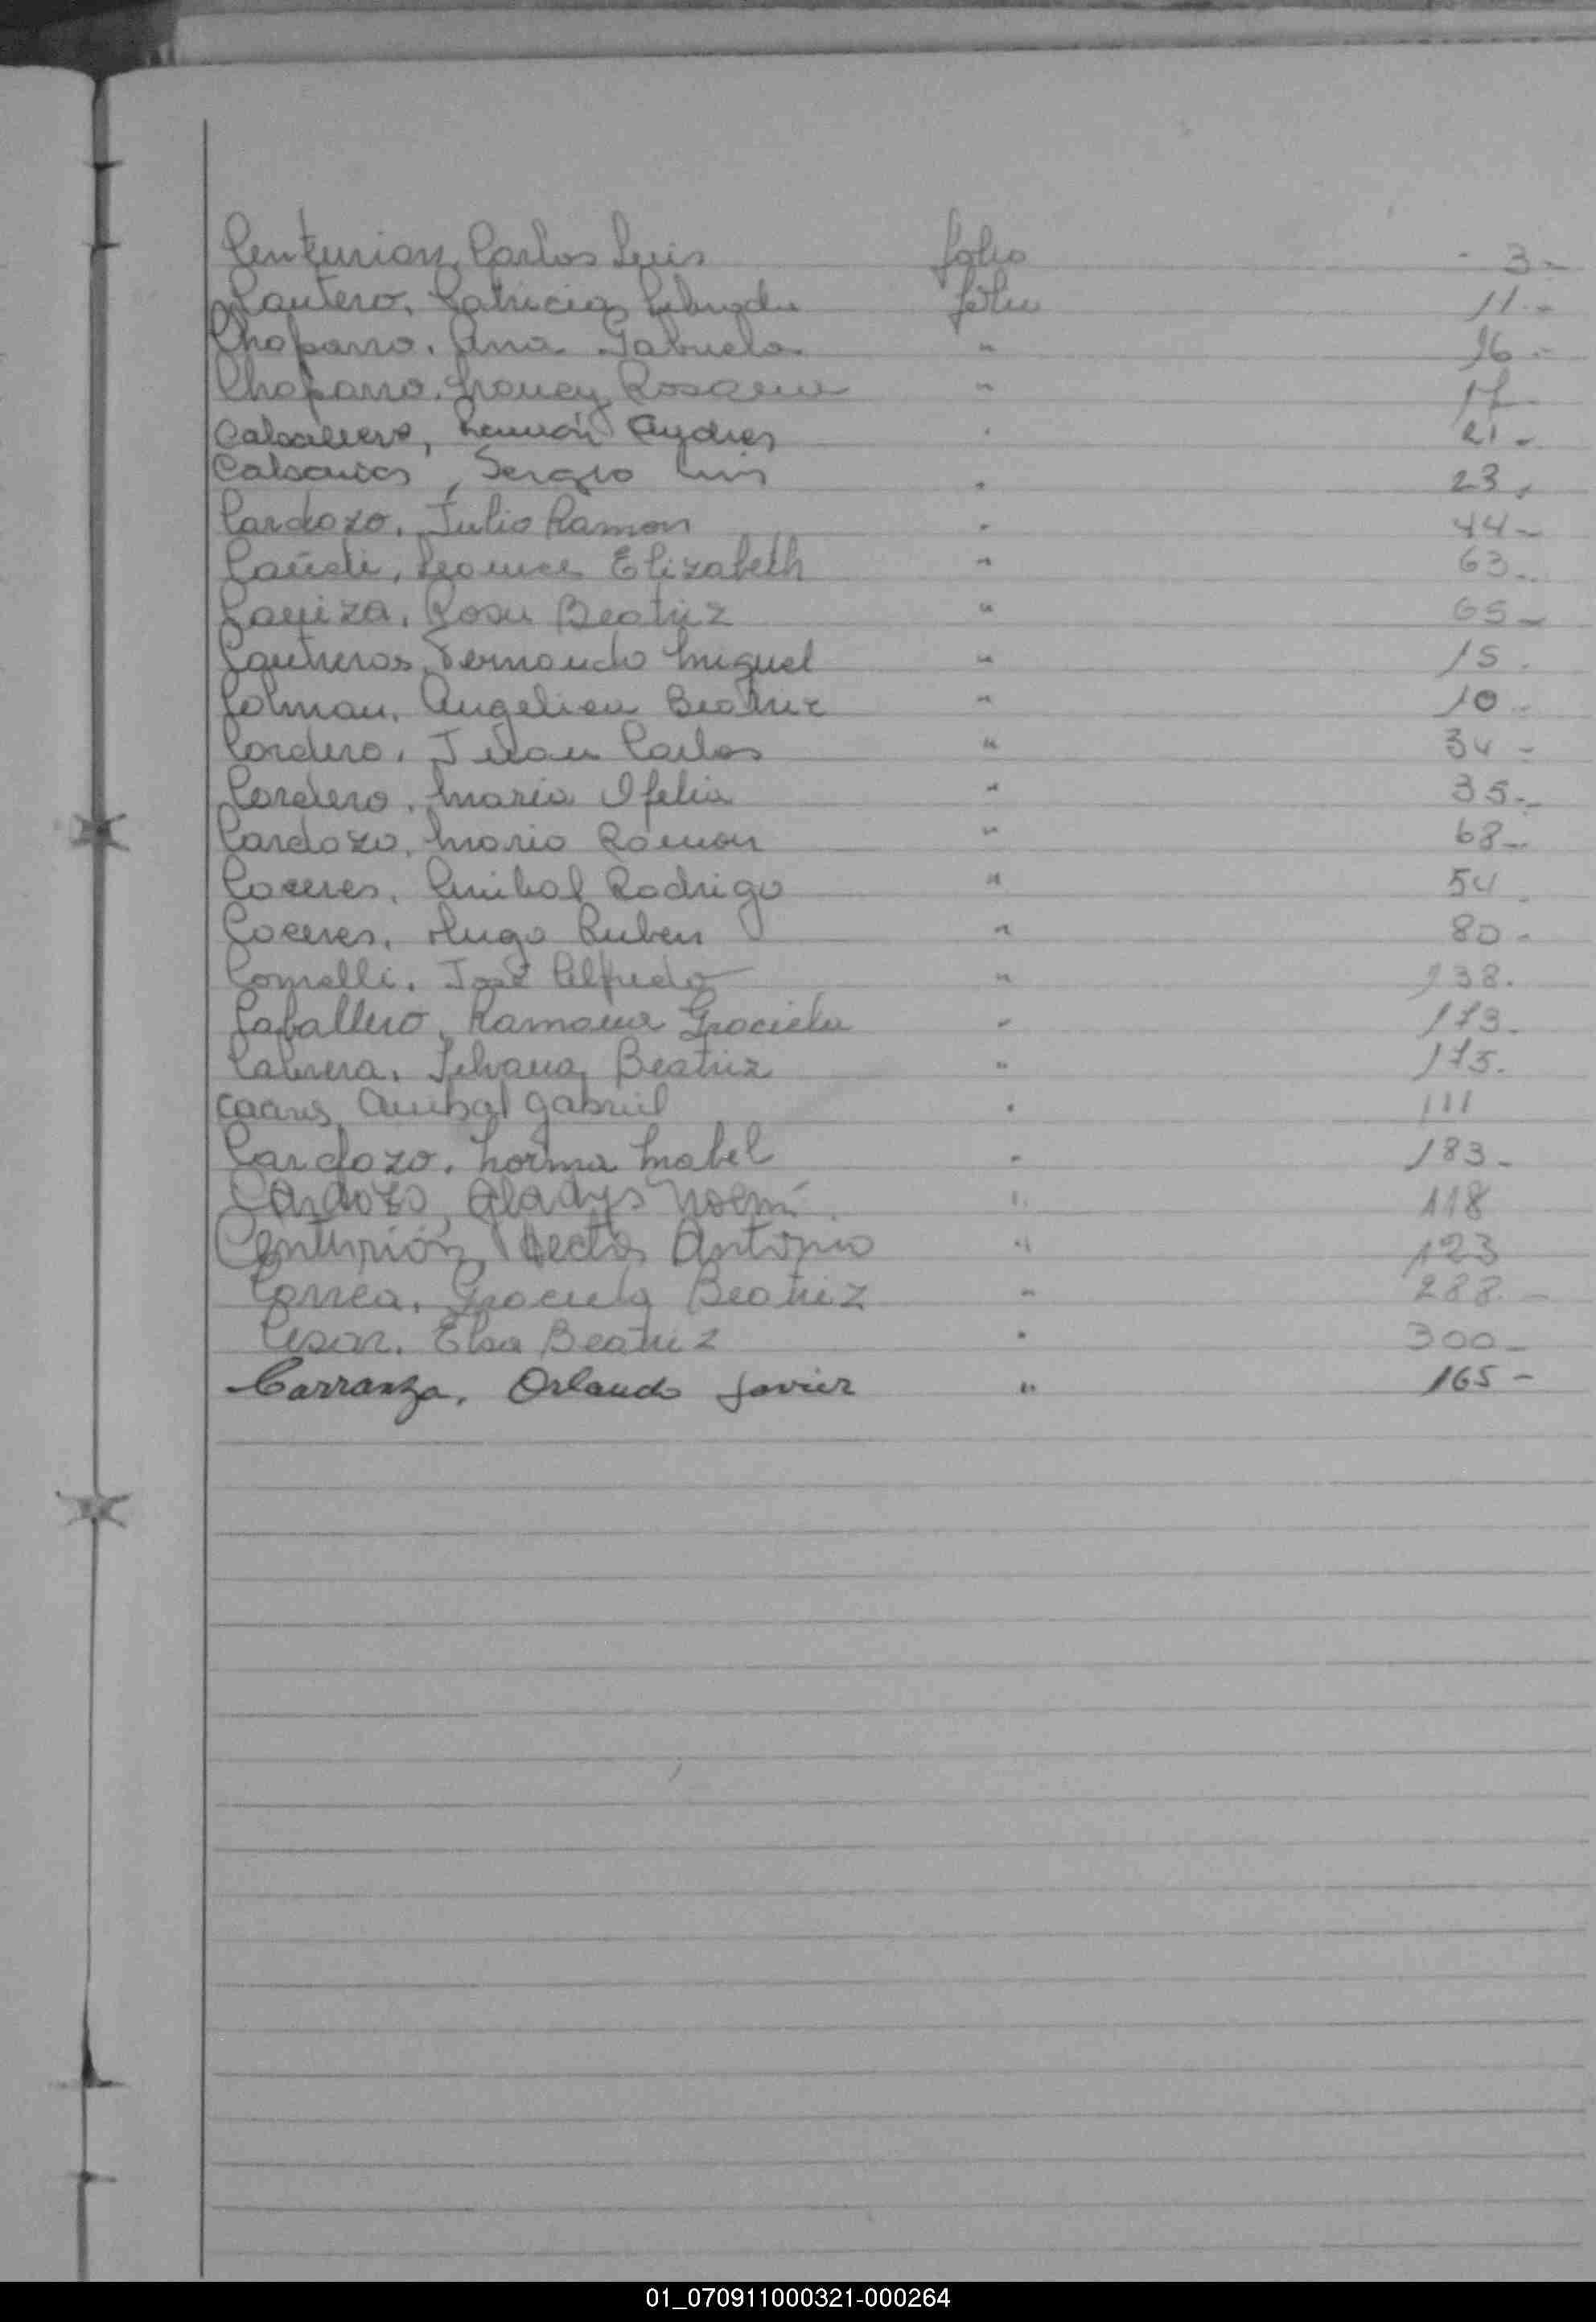 Centurion, Carlos Luis folio 3-
Cantero, Patricia folio 11-
Chaparro, Ana Gabriela " 16-
Chaparro, Nancy Rosana " 17
Ramón Andres 21-
Sergio Luis " 23.
Cardozo, Julio Ramon " 44-
Elizabeth " 63-
Rosa Beatriz " 65-
Contreras, Fernando Miguel " 15.
Colman, Angelica Beatriz " 10-
Cordero, Juan Carlos " 34-
Cordero, Maria Ofelia " 35-
Cardozo, Mario Ramon " 68-
Caceres, Anibal Rodrigo " 54
Caceres, Hugo Ruben " 80-
José Alfredo " 138.
Caballero, Ramona Graciela " 173.
Cabrera, Silvana Beatriz " 175.
Anibal Gabriel " 111
Cardozo, Norma Mabel " 183-
Cardozo, Gladys Noemí " 118
Centurión, Hector Antonio " 123
Correa, Graciela Beatriz " 288.-
Cesar, Elsa Beatriz " 300-
Carranza, Orlando Javier " 165-
01_070911000321-000264